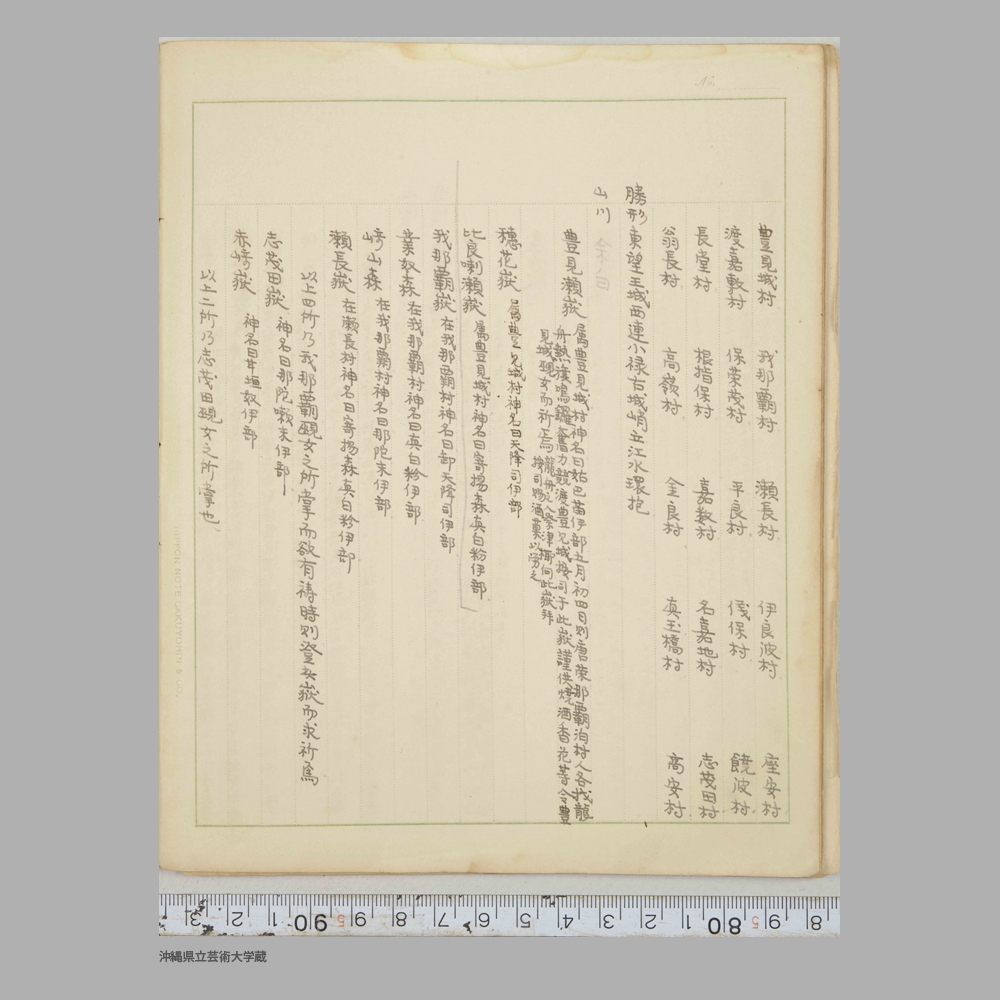 No.
豊見城村 我那覇村 瀬長村 伊良波村 座安村
渡嘉敷村 保栄茂村 平良村 儀保村 饒波村
長堂村 根指保村 嘉数村 名嘉地村 志茂田村
翁長村 高嶺村 金良村 真玉橋村 高安村
勝形 東望王城西連小禄右城峭立江水環抱
山川
豊見瀬嶽 属豊見城村神名曰 伊部五月初四日則唐栄那覇泊村人各 龍
舟 渡鳴鑼奮力競渡豊見城按司于此嶽謹供焼酒香花等令豊
見城覡女而祈焉龍舟 向此嶽拜
按司賜酒菓以労之
穂花嶽 属豊見城村神名曰天降司伊部
比良喇瀬嶽 属豊見城村神名曰寄揚森真白粉伊部
我那覇嶽 在我那覇村神名曰卸天降司伊部
業奴森 在我那覇村神名曰真白粉伊部
崎山森 在我那覇村神名曰那陀末伊部
瀬長嶽 在瀬長村神名曰寄揚森真白粉伊部
以上四所乃我那覇覡女之所掌而欲有祷時則登 嶽而求祈焉
志茂田嶽 神名曰那陀嗽末伊部
赤崎嶽 神名曰甘垣奴伊部
以上二所乃志茂田覡女之所掌也
NIPPON NOTE GAKUYOHIN & CO.
3 2 1 90 5 9 8 7 6 5 4 3 2 1 80 5 9 8
沖縄県立芸術大学蔵